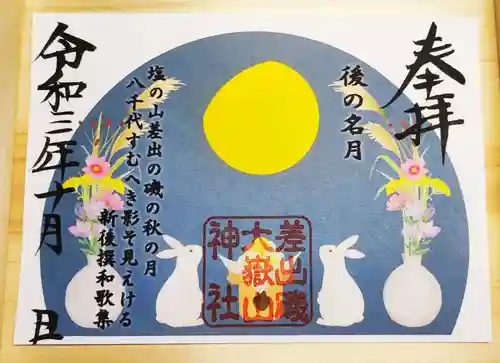 奉拝
後の名月
塩の山差出の磯の秋の月
八千代すむへき影そ見えける
新後撰和歌集
差出磯
大嶽山
神社
令和三年十月 日